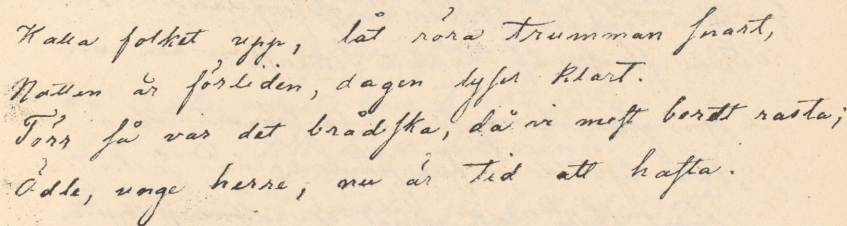 Kalla folket upp, låt röra trumman snart,
Natten är förliden, dagen lyser klart.
Förr så var det brådska, då vi mest bordt rasta;
Ödle, unge herre, nu är tid att hasta.